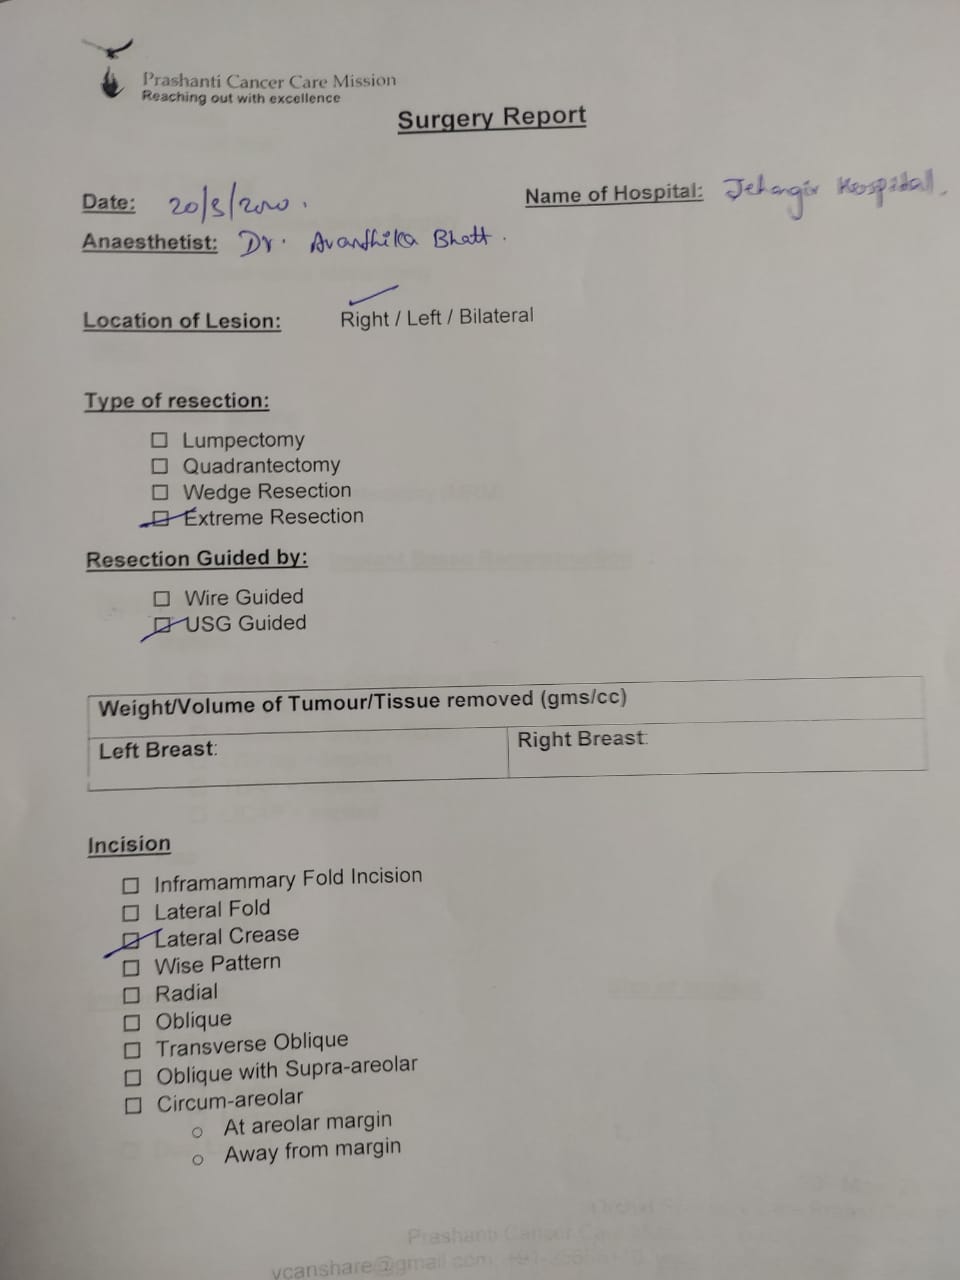 Prashanti Cancer Care Mission
Reaching out with excellence
Surgery Report
Date: 20/3/2020.
Name of Hospital: Jehangir Hospital.
Anaesthetist: Dr. Avanthika Bhatt.
Location of Lesion: Right / Left / Bilateral
Type of resection:
Lumpectomy
Quadrantectomy
Wedge Resection
Extreme Resection
Resection Guided by:
Wire Guided
USG Guided
Weight/Volume of Tumour/Tissue removed (gms/cc)
Left Breast:
Right Breast:
Incision
Inframammary Fold Incision
Lateral Fold
Lateral Crease
Wise Pattern
Radial
Oblique
Transverse Oblique
Oblique with Supra-areolar
Circum-areolar
At areolar margin
Away from margin
Prashanti Cancer
vcanshare@gmail.com